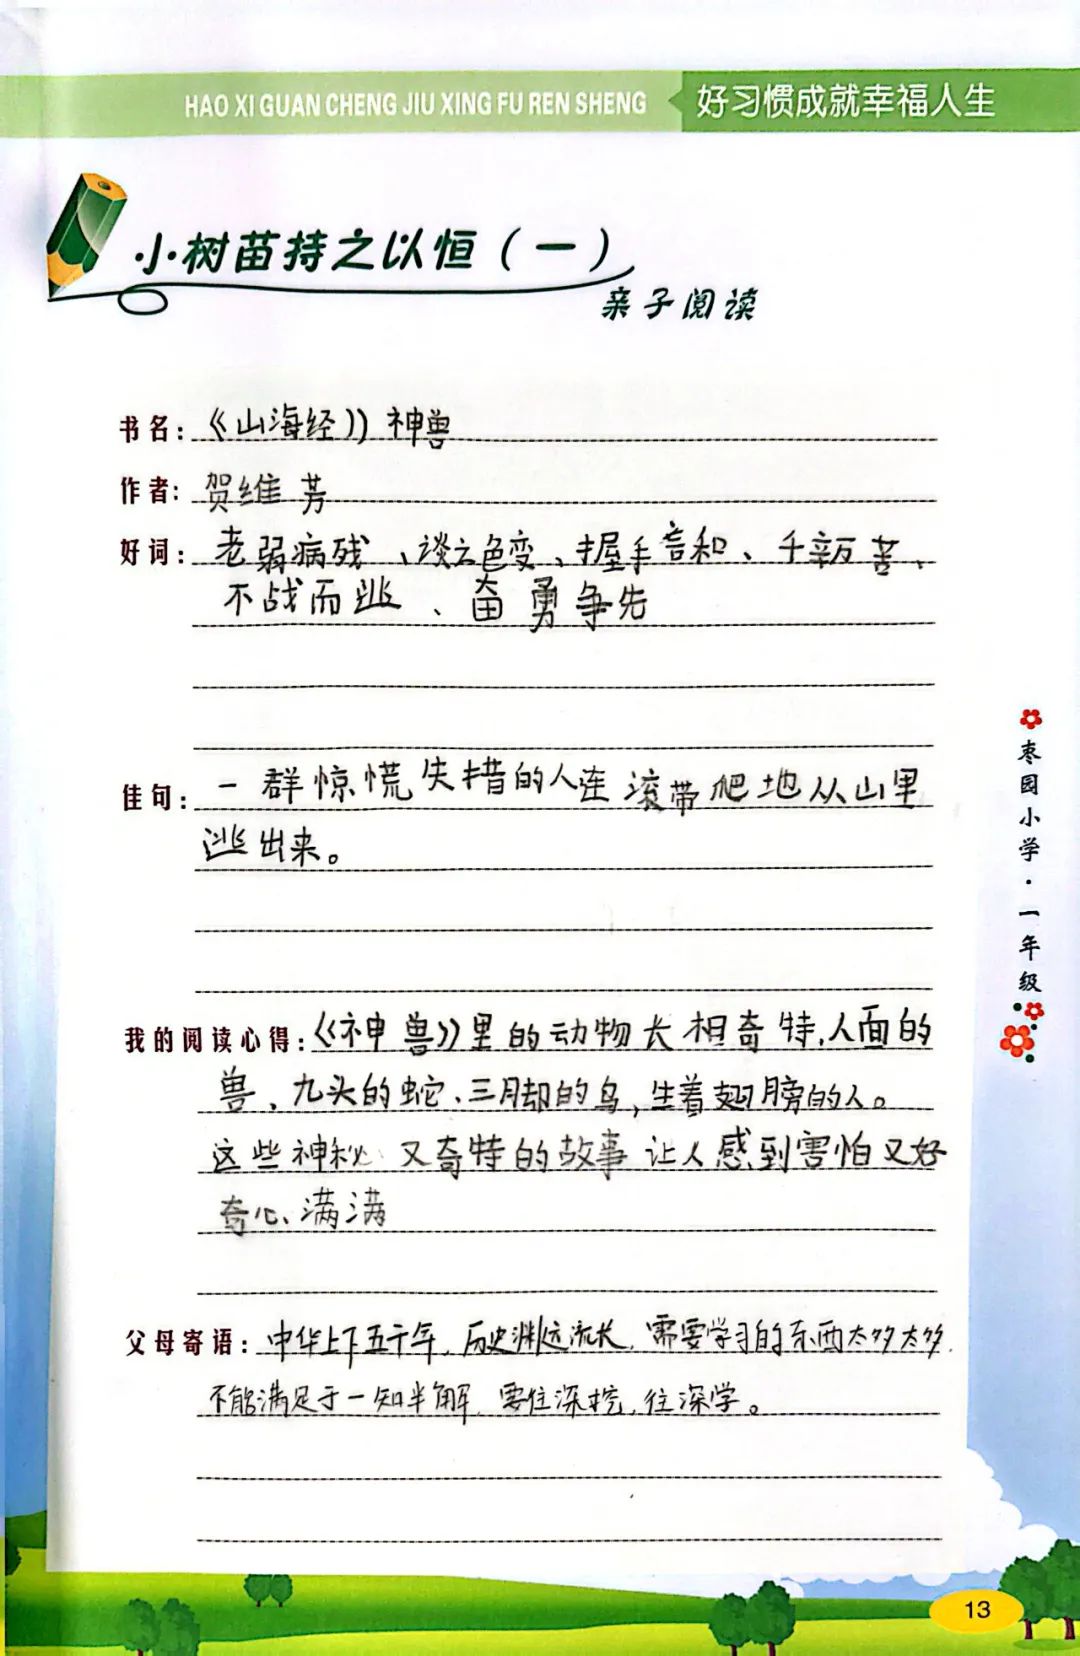 HAO XI GUAN CHENG JIU XING FU REN SHENG 好习惯成就幸福人生
小树苗持之以恒（一）
亲子阅读
书名：《山海经》神兽
作者：贺维芳
好词：老弱病残、谈之色变、握手言和、千辛万苦、
不战而逃、奋勇争先
佳句：一群惊慌失措的人连滚带爬地从山里
逃出来。
我的阅读心得：《神兽》里的动物长相奇特，人面的
兽、九头的蛇、三脚的鸟，生着翅膀的人。
这些神秘又奇特的故事让人感到害怕又好
奇心、满满
父母寄语：中华上下五千年，历史渊远流长，需要学习的东西太多太多，
不能满足于一知半解，要往深挖，往深学。
枣园小学·一年级
13